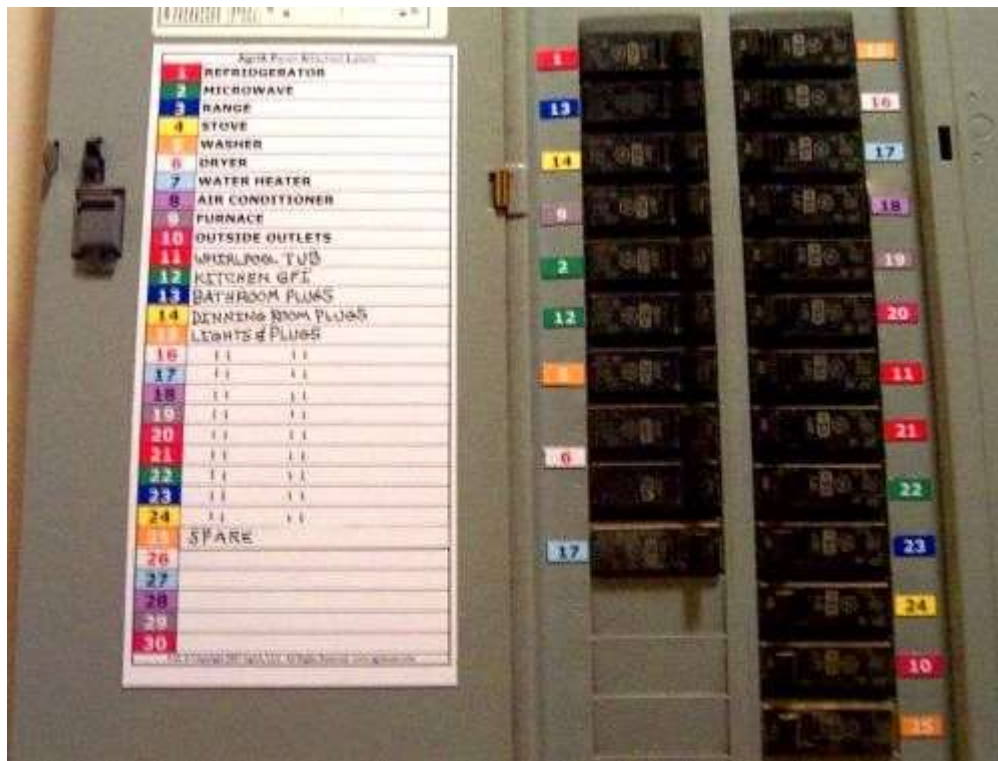 1 REFRIDGERATOR
2 MICROWAVE
3 RANGE
4 STOVE
5 WASHER
6 DRYER
7 WATER HEATER
8 AIR CONDITIONER
9 FURNACE
10 OUTSIDE OUTLETS
11 WHIRLPOOL TUB
12 KITCHEN GFI
13 BATHROOM PLUGS
14 DINNING ROOM PLUGS
15 LIGHTS & PLUGS
16 " "
17 " "
18 " "
19 " "
20 " "
21 " "
22 " "
23 " "
24 " "
25 SPARE
26
27
28
29
30
All Rights Reserved
1
13
14
9
2
12
5
6
17
15
16
17
18
19
20
11
21
22
23
24
10
25